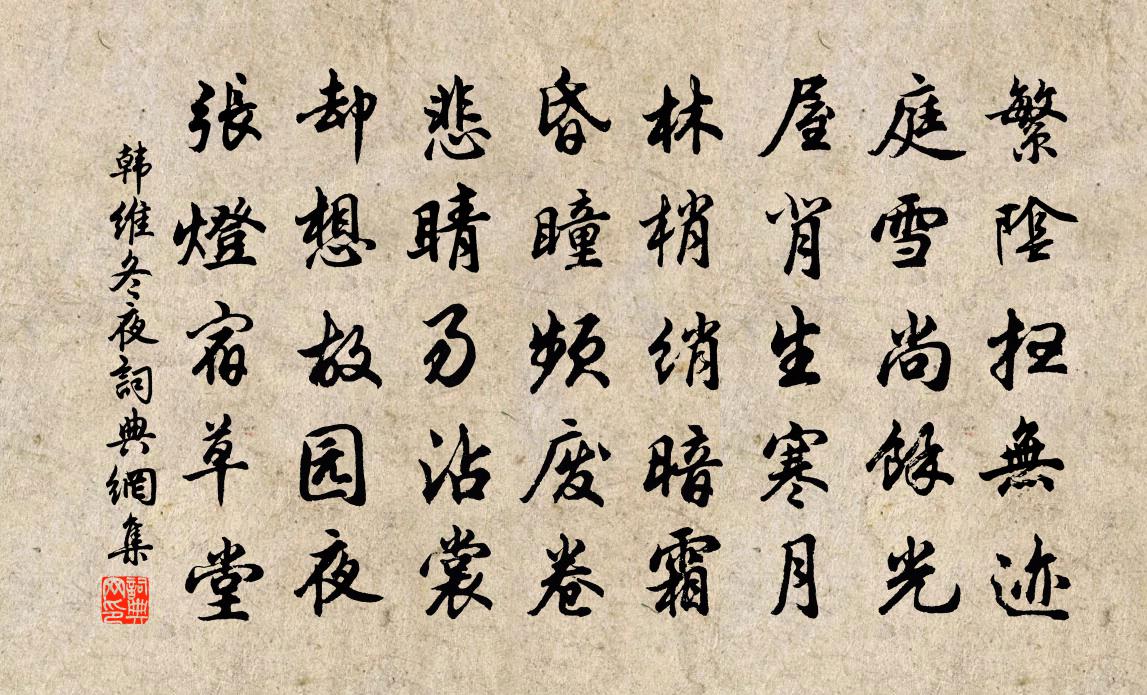 繁陰扫無迹
庭雪尚餘光
屋背生寒月
林梢绡暗霜
昏瞳频废卷
悲睛易沾裳
却想故园夜
張燈宿草堂
韩维冬夜詞典網集
詞典网印